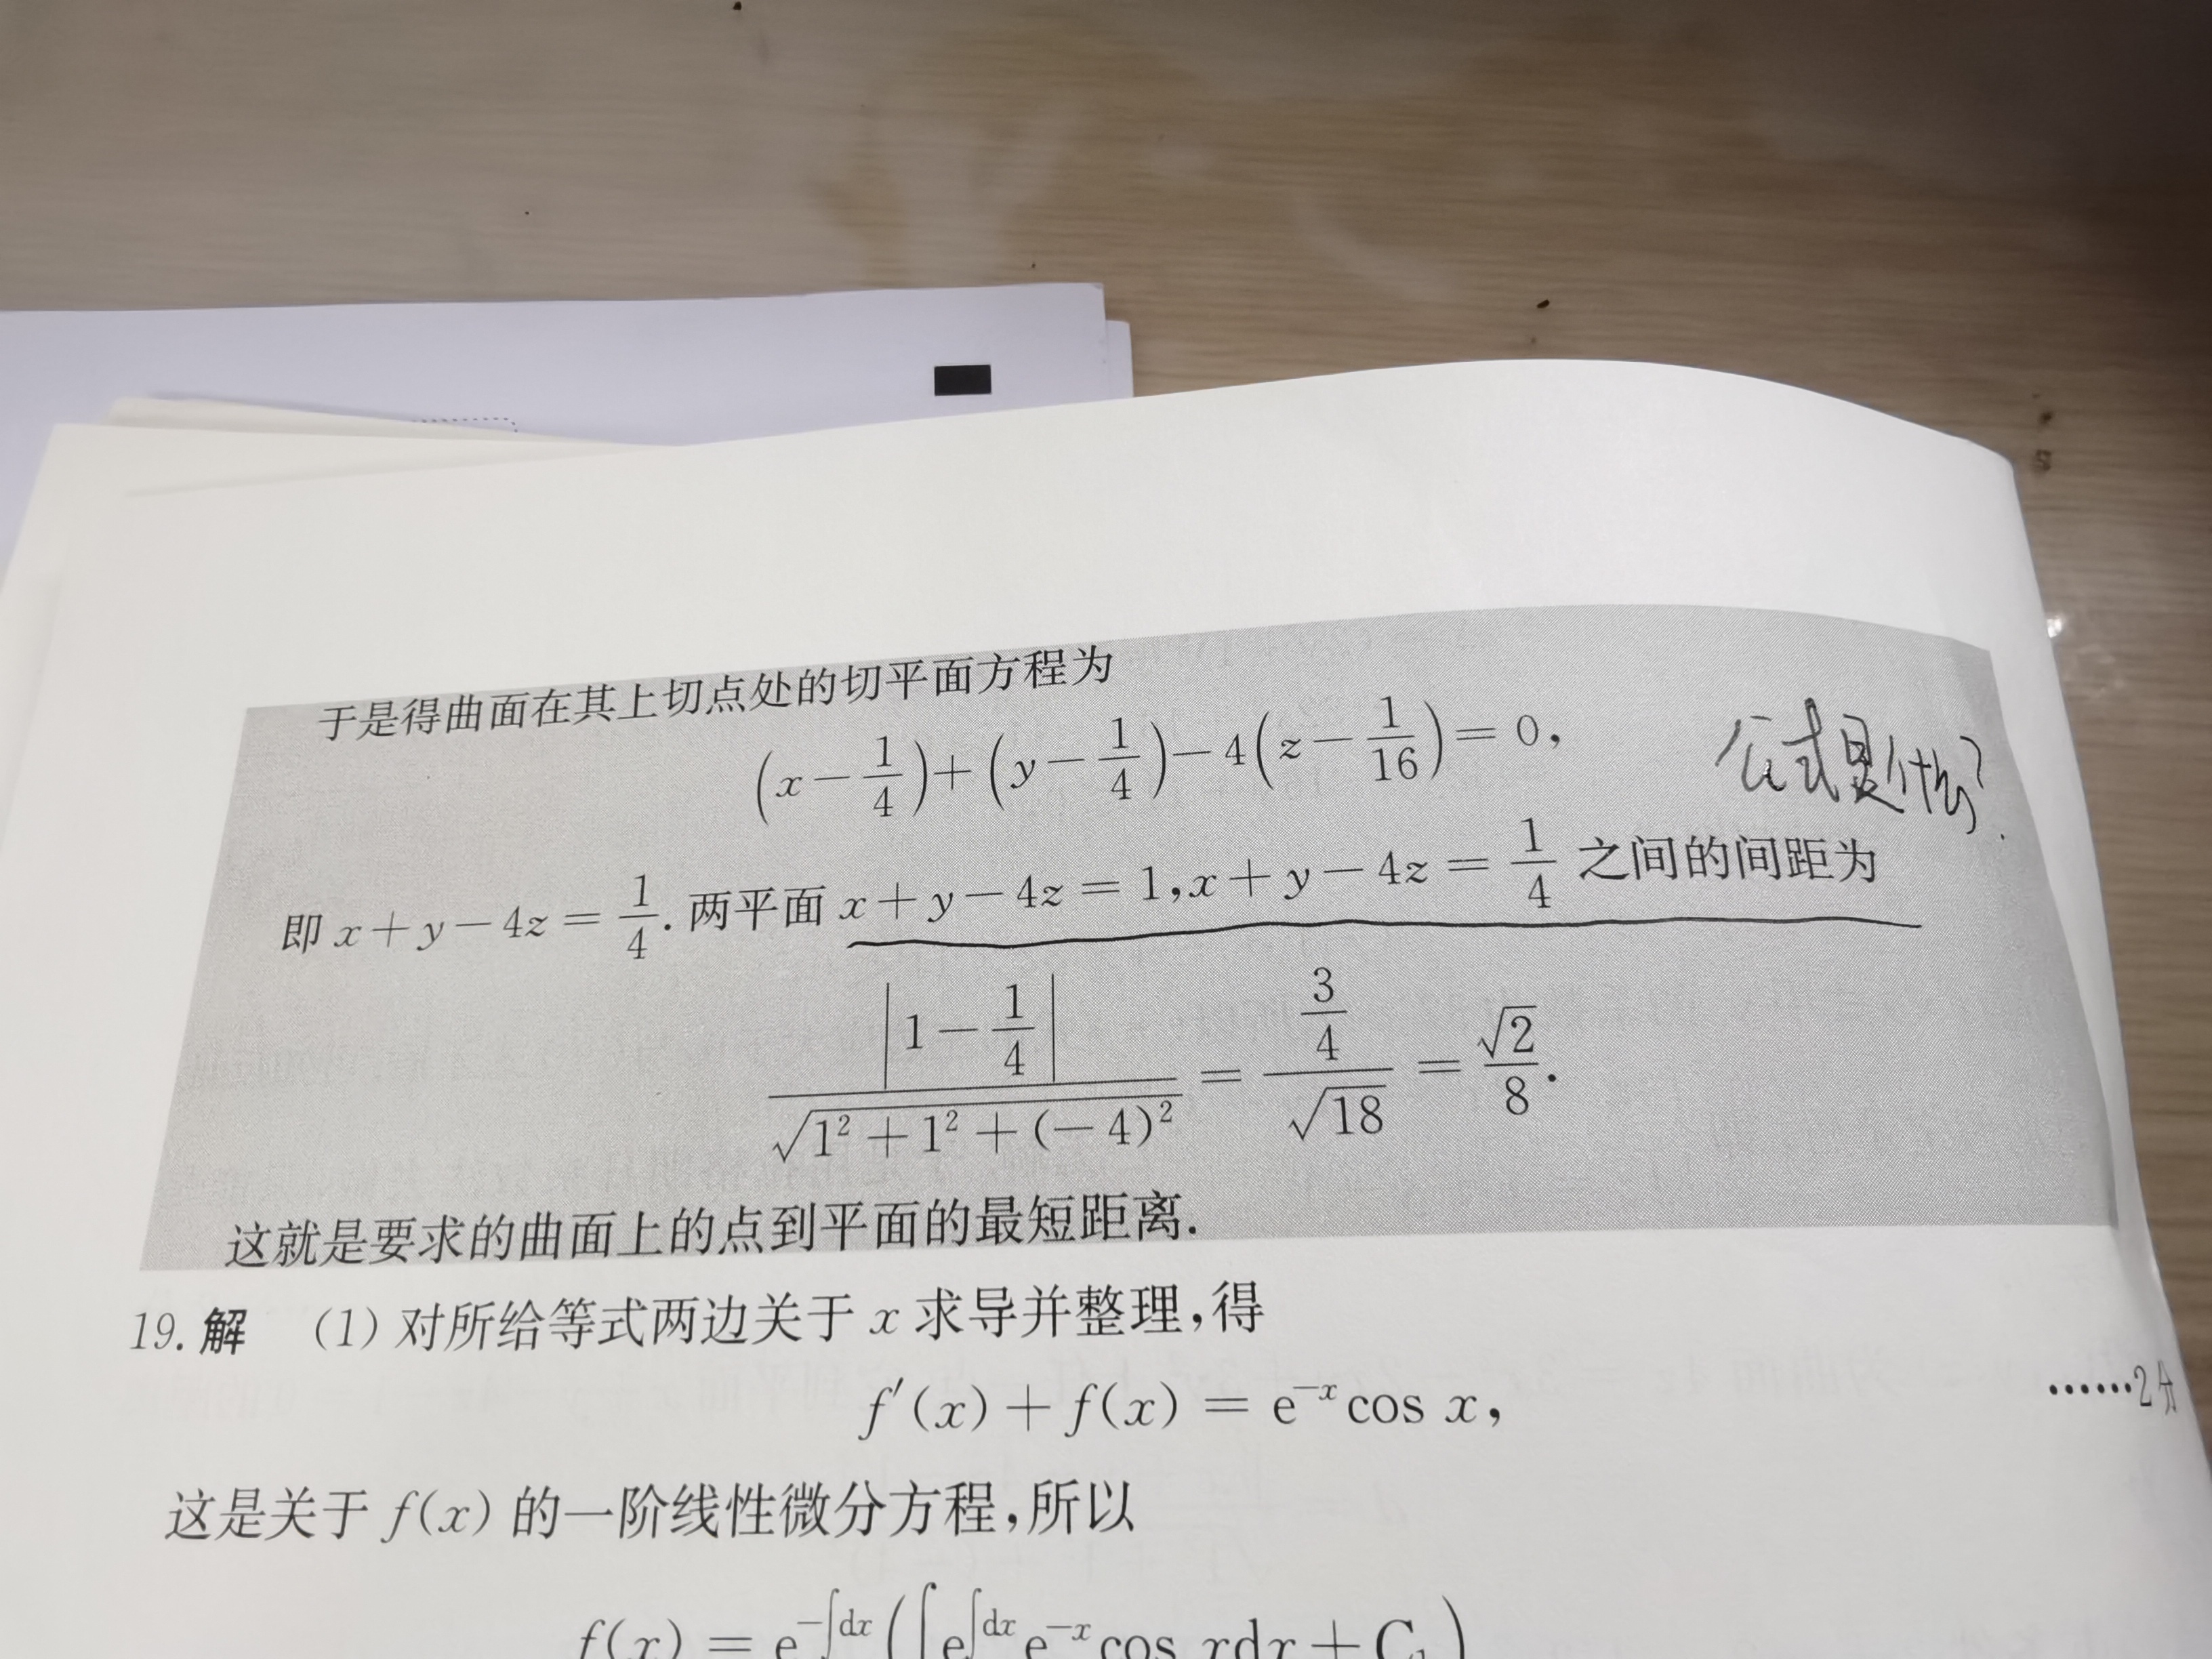 于是得曲面在其上切点处的切平面方程为
(x－1/4)＋(y－1/4)－4(z－1/16)＝0,
公式是什么?
即 x＋y－4z＝1/4. 两平面 x＋y－4z＝1, x＋y－4z＝1/4 之间的间距为
|1－1/4|/√(1²＋1²＋(－4)²)＝(3/4)/√18＝√2/8.
这就是要求的曲面上的点到平面的最短距离.
19. 解 (1) 对所给等式两边关于 x 求导并整理,得
f′(x)＋f(x)＝e⁻ˣcos x,
……2分
这是关于 f(x) 的一阶线性微分方程,所以
f(x)＝e^(－∫dx)(∫e^(∫dx)e⁻ˣcos xdx＋C₁)